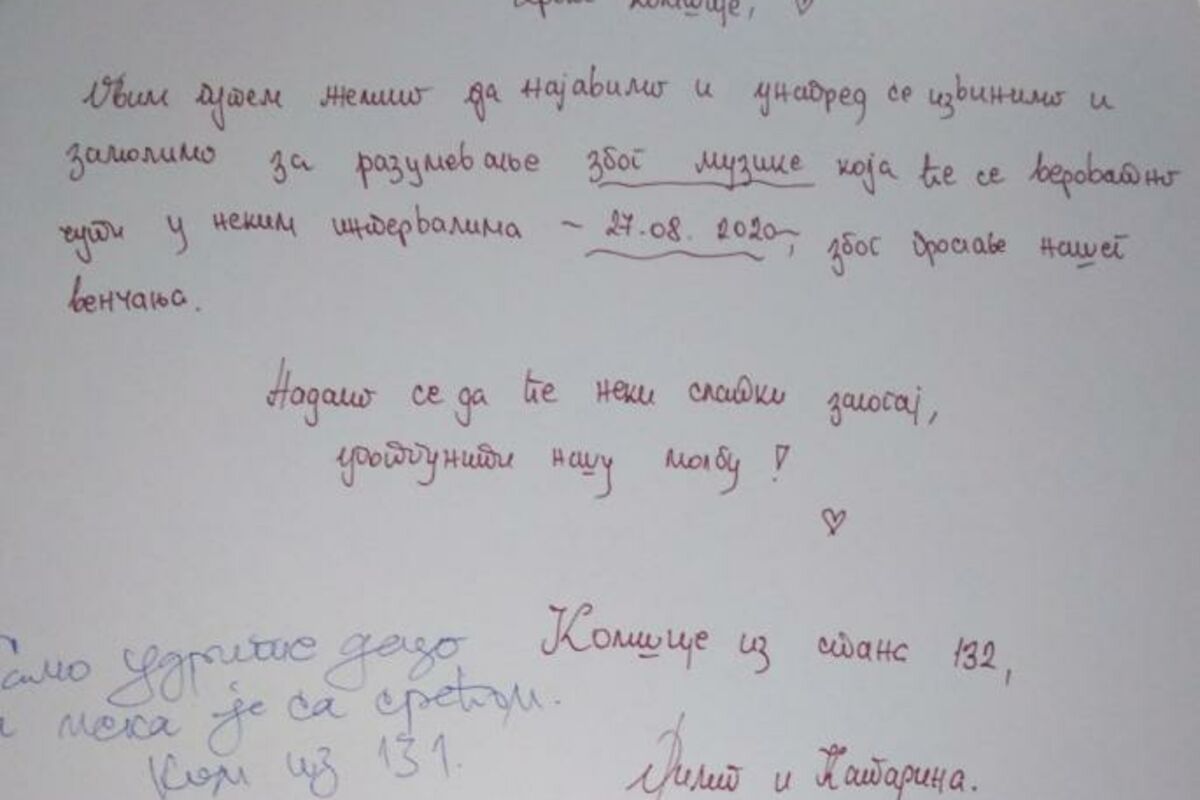 Драге комшије, ♡
Овим путем желимо да најавимо и унапред се извинимо и
замолимо за разумевање због музике која ће се вероватно
чути у неким интервалима ~ 27.08. 2020~, због прославе нашег
венчања.
Надамо се да ће неки слатки залогај,
употпунити нашу молбу !
♡
Комшије из стана 132,
Филип и Катарина.
Само удрите децо
и нека је са срећом.
Ком из 131.